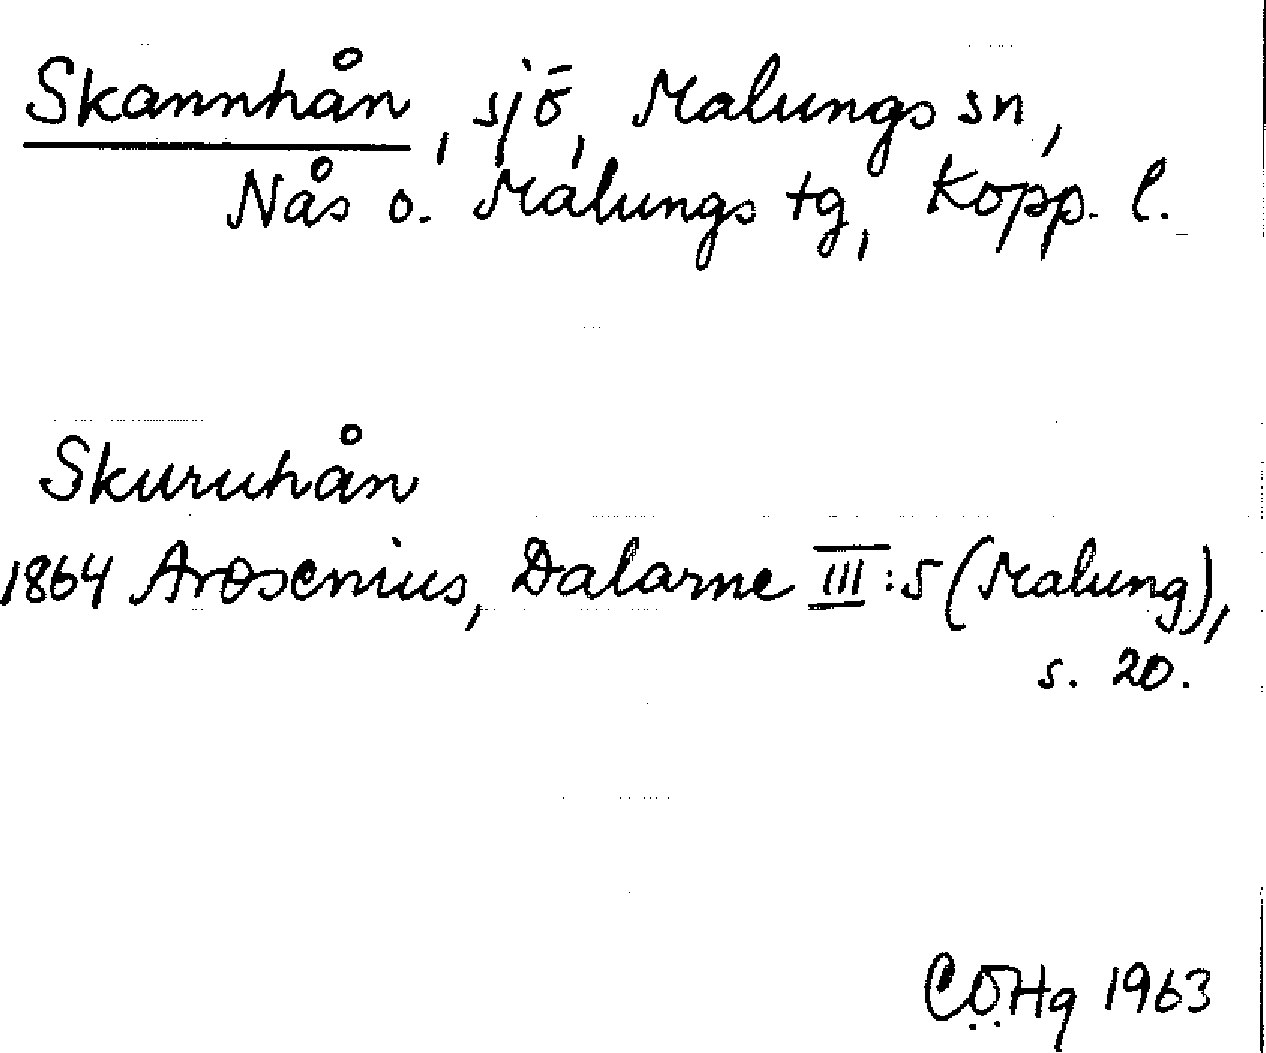 Skannhån, sjö, Malungs sn,
Nås o. Malungs tg, Kopp. l.
Skuruhån
1864 Arosenius, Dalarne III:5 (Malung),
s. 20.
CÖHg 1963